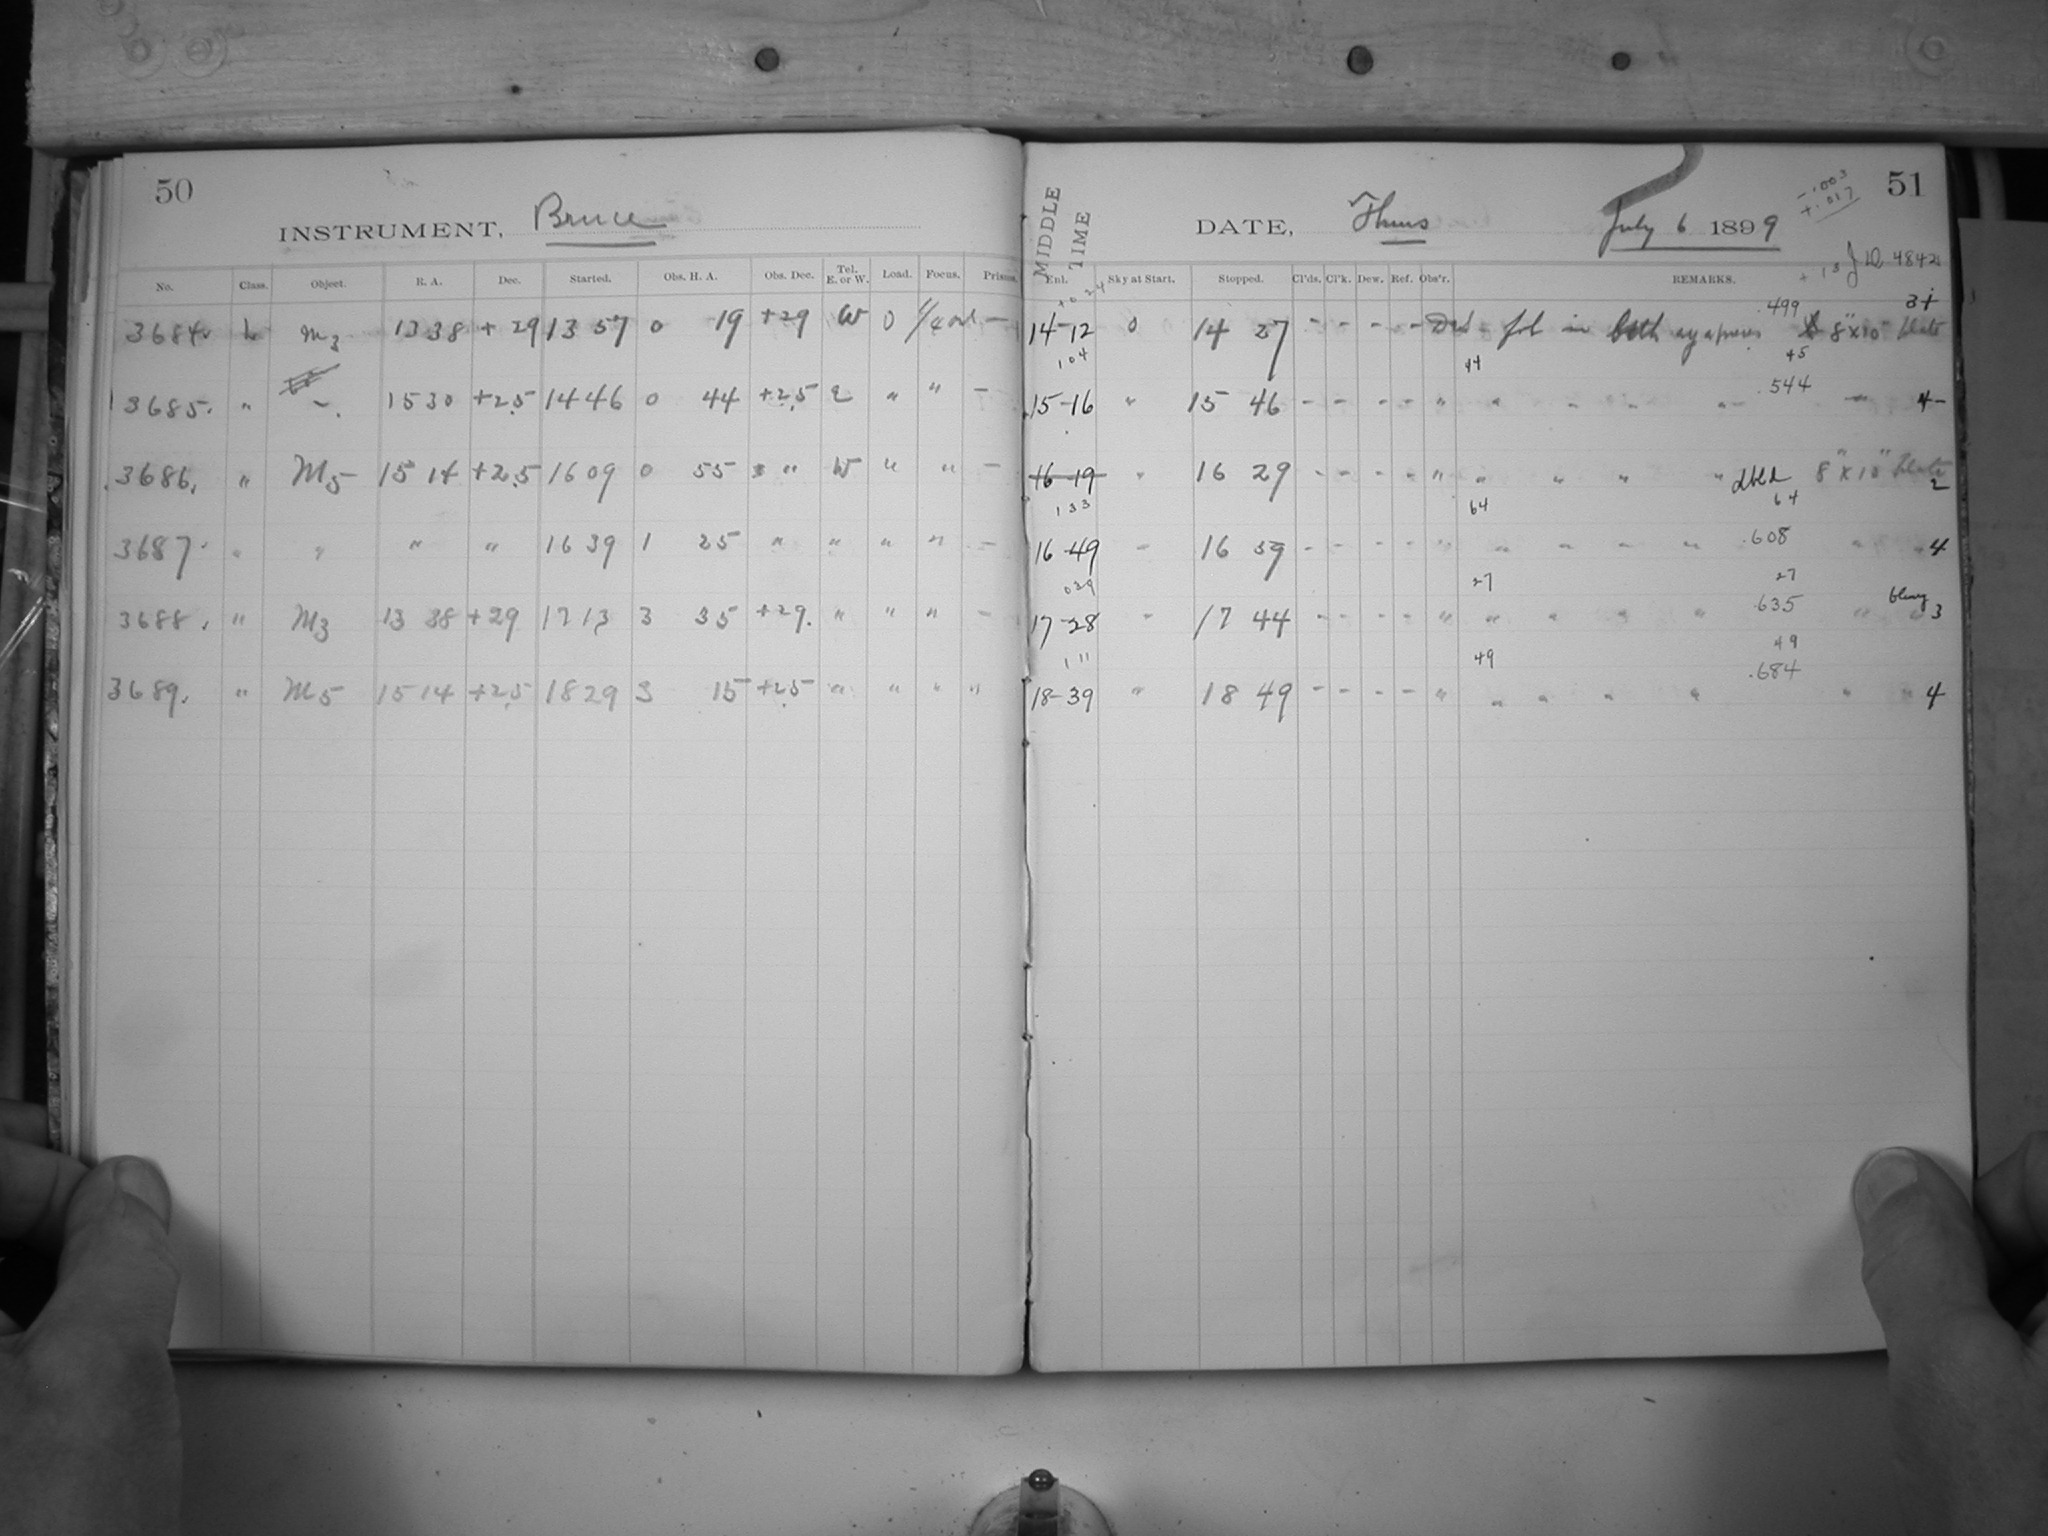 50
INSTRUMENT, Bruce
No. Class. Object. R. A. Dec. Started. Obs. H. A. Obs. Dec. Tel. E. or W. Load. Focus. Prisms.
3684 L M3 13 38 +29 13 57 0 19 +29 W 0 —
3685. " 15 30 +25 14 46 0 44 +25 E " " —
3686. " M5 15 14 +25 16 09 0 55 " W " " —
3687 " " " " 16 39 1 25 " " " " —
3688. " M3 13 38 +29 17 13 3 35 +29. " " " —
3689. " M5 15 14 +25 18 29 3 15 +25 " " " "
MIDDLE TIME
DATE, Thurs July 6 1899
-.003
+.017
51
+ 13 J D 4842
Enl. Sky at Start. Stopped. Cl'ds. Cl'k. Dew. Ref. Obs'r. REMARKS.
+0 24
.499 3+
14-12 0 14 27 - - - - fol in both 8"x10" plate
104 44 45
.544
15-16 " 15 46 - - - - " " " " " 4-
16-19 " 16 29 - - - - " " " " " dbld 8"x10" plate 2
133 64 64
.608
16-49 " 16 59 - - - - " " " " " " " 4
029 27 27
.635 blury
17-28 " 17 44 - - - - " " " " " " " 3
111 49 49
.684
18-39 " 18 49 - - - - " " " " " " " 4